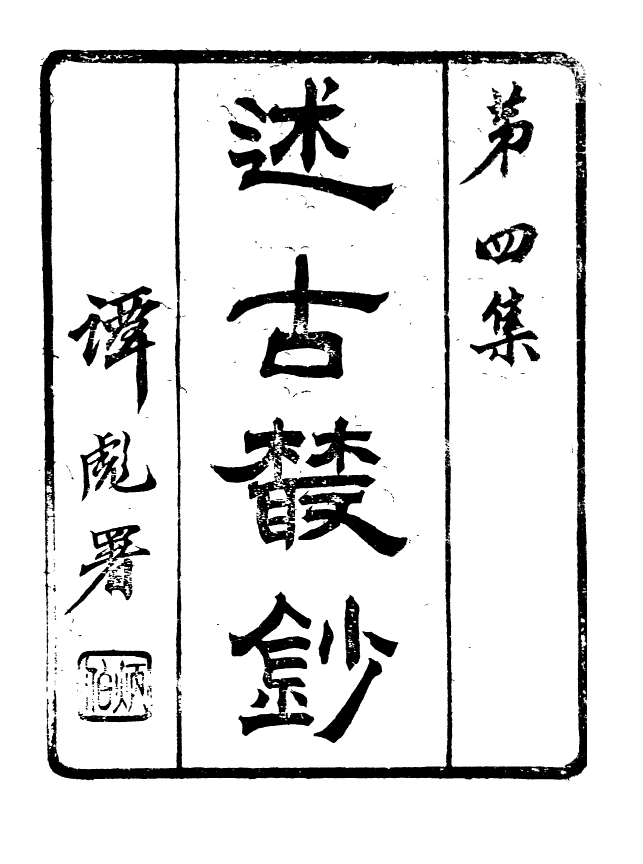 第四集
述古叢鈔
譚彪署